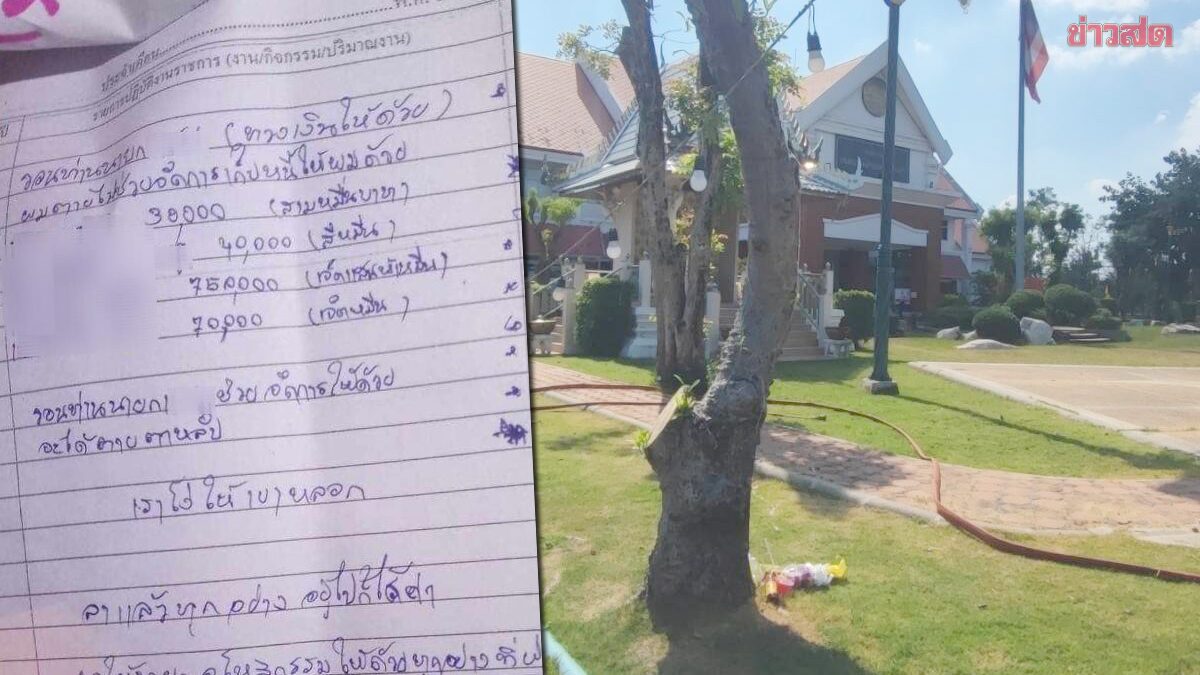 ข่าวสด
ประจำเดือน
รายการปฏิบัติงานราชการ (งาน/กิจกรรม/ปริมาณงาน)
(ทวงเงินให้ด้วย)
วอนท่านนายก
ผมตายไปช่วยจัดการเก็บหนี้ให้ผมด้วย
30,000 (สามหมื่นบาท)
40,000 (สี่หมื่น)
750,000 (เจ็ดแสนห้าหมื่น)
70,000 (เจ็ดหมื่น)
วอนท่านนายก ช่วยจัดการให้ด้วย
จะได้ตายตาหลับ
เราโง่ให้เขาหลอก
ลาแล้วทุกอย่าง อยู่ไปก็ไร้ค่า
ให้ด้วยทุกอย่างที่